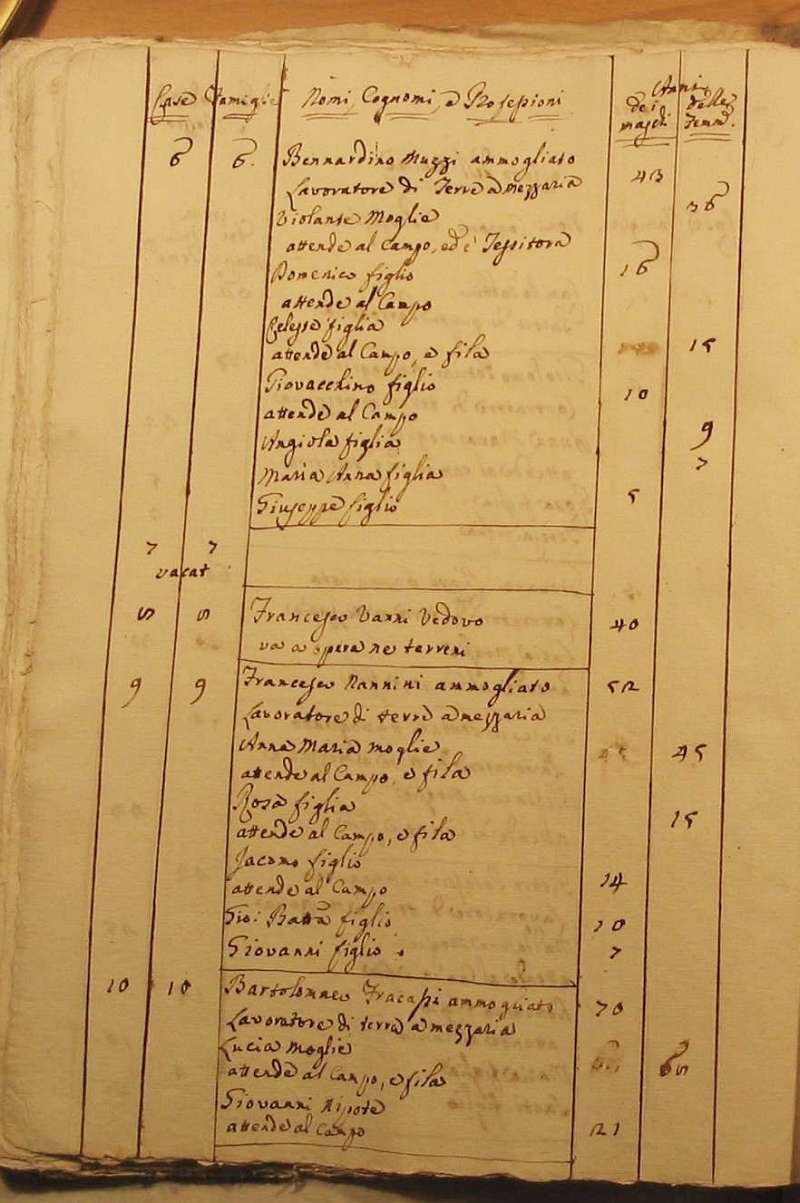 Case Famiglie Nomi, Cognomi, e Professioni Anni
dei maschi delle Femm.
6 6. Bernardino Muzzi ammogliato 43
Lavoratore di Terre a mezzaria
Violante Moglie 36
attende al Campo, ed e' Tessitora
Domenico figlio 16
attende al Campo
Celeste figlia
attende al Campo, e fila 15
Giovacchino figlio 10
attende al Campo
Angiola figlia 9
Maria Anna figlia 7
Giuseppe figlio 5
7 7
vacat
8 8 Francesco Vanni Vedovo 40
va a opera ne terreni
9 9 Francesco Nannini ammogliato 52
Lavoratore di terre a mezzaria
Anna Maria moglie 45
attende al Campo, e fila
Rosa figlia 15
attende al Campo, e fila
Jacomo figlio
attende al Campo 14
Gio: Batta figlio 10
Giovanni figlio 7
10 10 Bartolommeo Fracassi ammogliato 70
Lavoratore di terre a mezzaria
Lucia Moglie 68
attende al Campo, e fila
Giovanni Nipote
attende al Campo 21